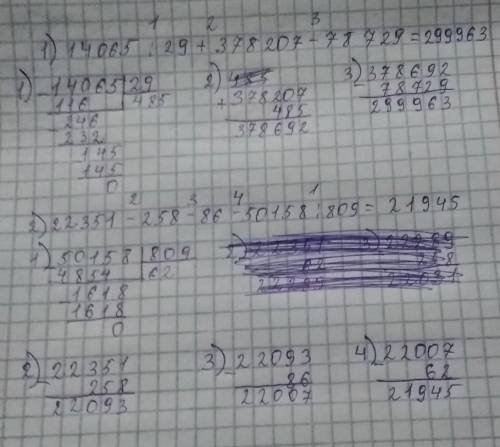 1 2 3
1) 14065 : 29 + 378207 - 78729 = 299963
1) 14065 | 29
- 116 | 485
- 246
232
145
145
0
2) 485
+ 378207
485
378692
3) - 378692
78729
299963
2 3 4 1
2) 22351 - 258 - 86 - 50158 : 809 = 21945
1) - 50158 | 809
4854 | 62
- 1618
1618
0
2) - 22351
258
22093
3) - 22093
86
22007
4) - 22007
62
21945